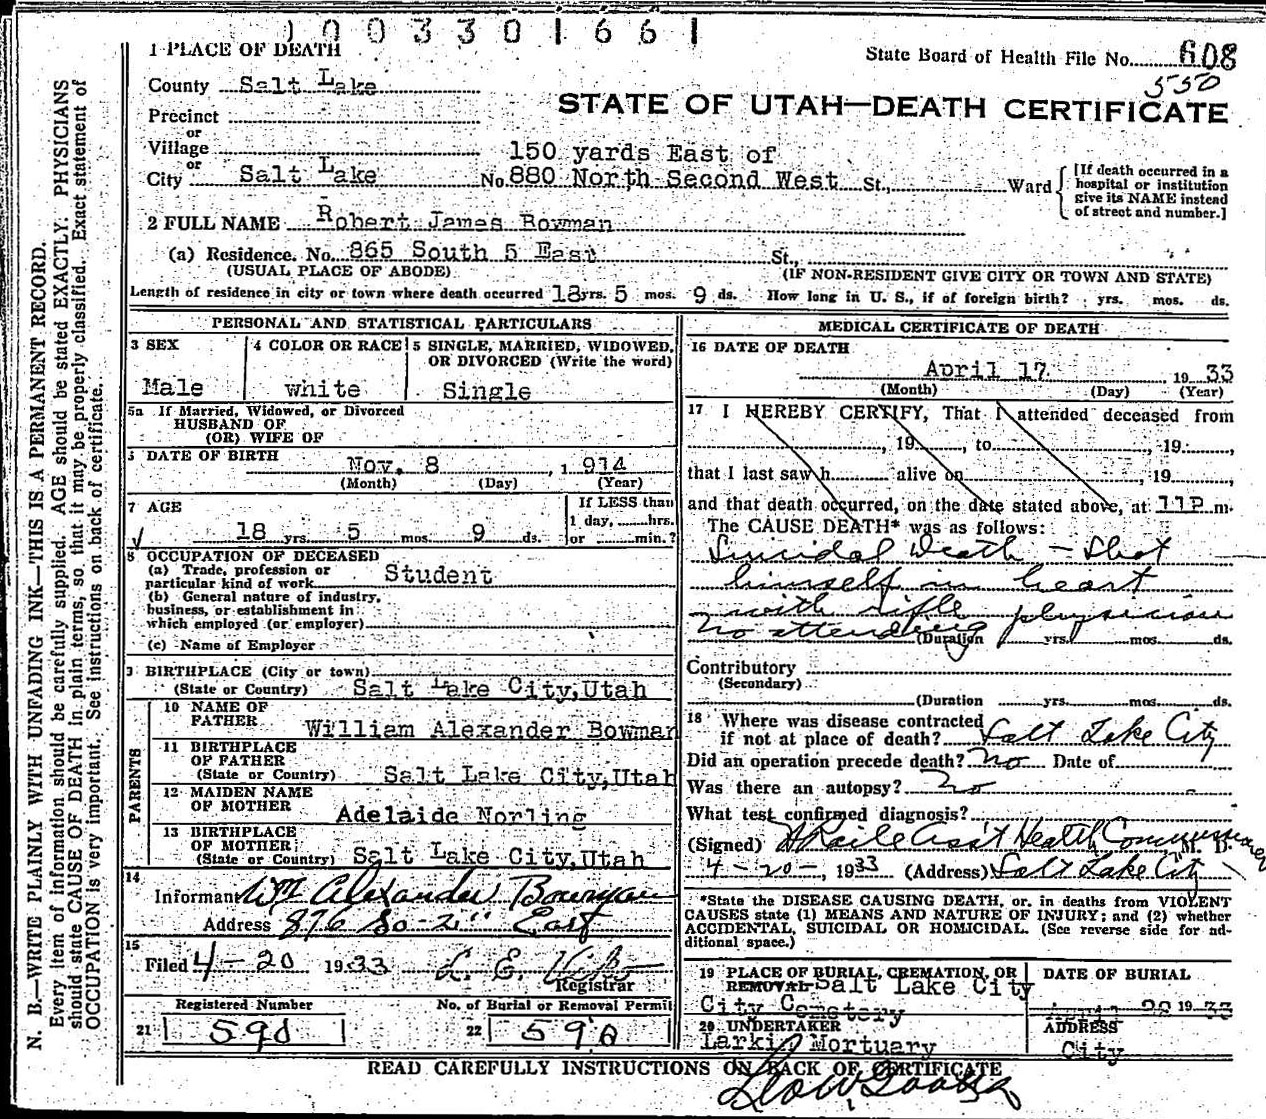 1003301661
1 PLACE OF DEATH
State Board of Health File No. 608
550
County Salt Lake
STATE OF UTAH—DEATH CERTIFICATE
Precinct
or
Village
150 yards East of
or
City Salt Lake No. 880 North Second West St., Ward
[If death occurred in a hospital or institution give its NAME instead of street and number.]
2 FULL NAME Robert James Bowman
(a) Residence. No. 865 South 5 East St.,
(USUAL PLACE OF ABODE) (IF NON-RESIDENT GIVE CITY OR TOWN AND STATE)
Length of residence in city or town where death occurred 18 yrs. 5 mos. 9 ds. How long in U. S., if of foreign birth? yrs. mos. ds.
PERSONAL AND STATISTICAL PARTICULARS
3 SEX
Male
4 COLOR OR RACE
white
5 SINGLE, MARRIED, WIDOWED,
OR DIVORCED (Write the word)
Single
5a If Married, Widowed, or Divorced
HUSBAND OF
(OR) WIFE OF
DATE OF BIRTH
Nov. 8, 1914
(Month) (Day) (Year)
7 AGE
18 yrs. 5 mos. 9 ds.
If LESS than
1 day, hrs.
or min.?
8 OCCUPATION OF DECEASED
(a) Trade, profession or
particular kind of work Student
(b) General nature of industry,
business, or establishment in
which employed (or employer)
(c) Name of Employer
BIRTHPLACE (City or town)
(State or Country) Salt Lake City, Utah
PARENTS
10 NAME OF
FATHER William Alexander Bowman
11 BIRTHPLACE
OF FATHER
(State or Country) Salt Lake City, Utah
12 MAIDEN NAME
OF MOTHER Adelaide Norling
13 BIRTHPLACE
OF MOTHER
(State or Country) Salt Lake City, Utah
14
Informant Wm Alexander Bowman
Address 876 So-2" East
15
Filed 4-20 1933 L. E.
Registrar
Registered Number No. of Burial or Removal Permit
21 590 22 590
MEDICAL CERTIFICATE OF DEATH
16 DATE OF DEATH
April 17 1933
(Month) (Day) (Year)
17 I HEREBY CERTIFY, That I attended deceased from
, 19 , to , 19 ,
that I last saw h alive on , 19 ,
and that death occurred, on the date stated above, at 11P m.
The CAUSE DEATH* was as follows:
Suicidal Death - Shot
himself in heart
with rifle physician
No attending
(Duration yrs. mos. ds.
Contributory
(Secondary)
(Duration yrs. mos. ds.
18 Where was disease contracted
if not at place of death? Salt Lake City
Did an operation precede death? No Date of
Was there an autopsy? No
What test confirmed diagnosis?
(Signed) Ass't Health Commissioner M. D.
4-20-, 1933 (Address) Salt Lake City
*State the DISEASE CAUSING DEATH, or, in deaths from VIOLENT
CAUSES state (1) MEANS AND NATURE OF INJURY; and (2) whether
ACCIDENTAL, SUICIDAL OR HOMICIDAL. (See reverse side for ad-
ditional space.)
19 PLACE OF BURIAL, CREMATION, OR
REMOVAL Salt Lake City
City Cemetery
DATE OF BURIAL
April 20 1933
20 UNDERTAKER
Larkin Mortuary
ADDRESS
City
READ CAREFULLY INSTRUCTIONS ON BACK OF CERTIFICATE
N. B.—WRITE PLAINLY WITH UNFADING INK—THIS IS A PERMANENT RECORD.
Every item of information should be carefully supplied. AGE should be stated EXACTLY. PHYSICIANS
should state CAUSE OF DEATH in plain terms, so that it may be properly classified. Exact statement of
OCCUPATION is very important. See instructions on back of certificate.